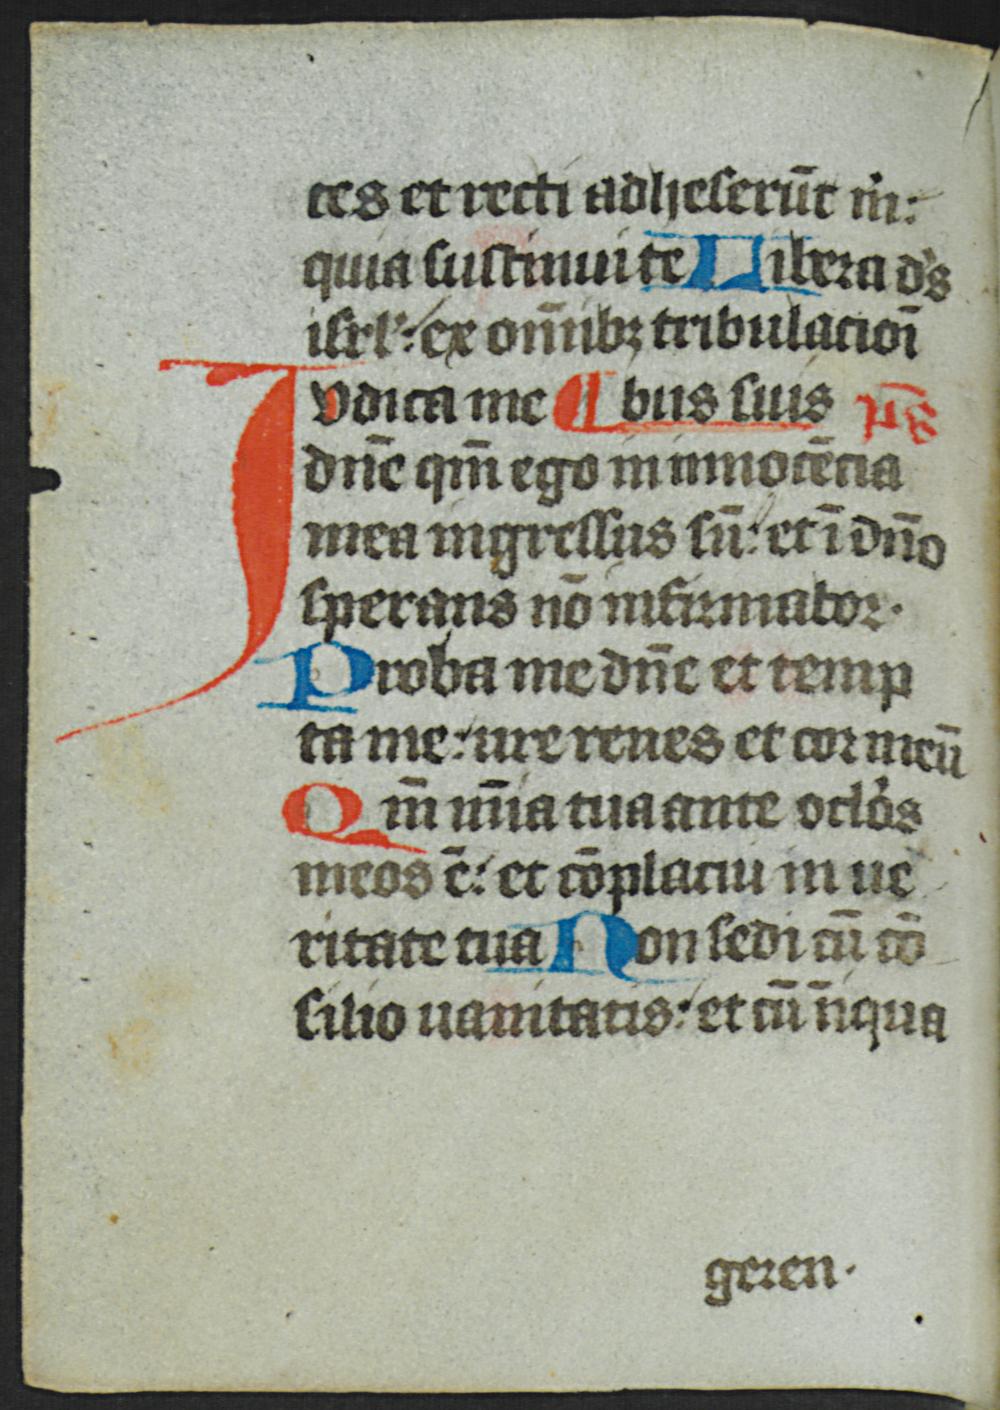 tes et recti adheserūt m̄:
quia sustinui te Libera ds
isrl': ex om̄ibꝫ tribulacioī
Judica me ¶ bus suis p̄s
dn̄e qm̄ ego in innocēcia
mea ingressus sū: et ī dn̄o
sperans nō infirmabor.
Proba me dn̄e et temp
ta me: ure renes et cor meū
Qm̄ mīa tua ante oclos
meos ē: et cōplacui in ue
ritate tua Non sedi cū cō
silio uanitatis: et cū īiqua
geren.